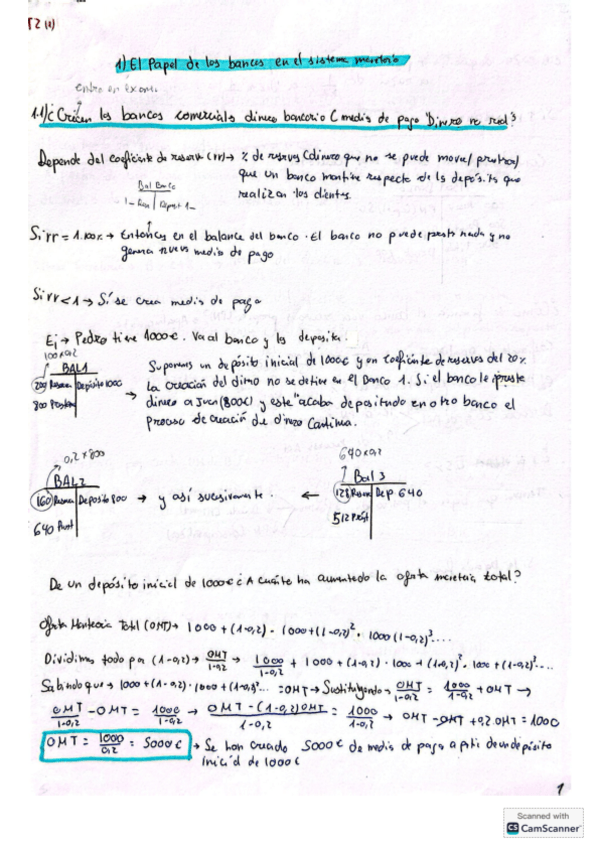 T2 (1)
1) El Papel de los bancos en el sistema monetario
entra en examen
1.1) ¿Crean los bancos comerciales dinero bancario (medio de pago "Dinero no real")?
Depende del coeficiente de reserva (rr) → % de reservas (dinero que no se puede mover/prestar)
que un banco mantiene respecto de los depósitos que
realizan los clientes
Bal Banco
1_ Res | Deposit 1_
Si rr = 1.100% → Entonces en el balance del banco. El banco no puede prestar nada y no
genera nuevos medio de pago
Si rr < 1 → Sí se crea medio de pago
Ej → Pedro tiene 1000€. Va al banco y los deposita.
BAL1
200 Reserva | Depósito 1000
800 Prestam
→ Suponemos un depósito inicial de 1000€ y un coeficiente de reservas del 20%
la creación del dinero no se detiene en el Banco 1. Si el banco le preste
dinero a Juan (800€) y este "acaba depositando en otro banco el
proceso de creación de dinero continua.
0,2 x 800
BAL2
160 Reserva | Deposito 800 → y así sucesivamente. ←
640 Prest
640 x 0,2
Bal 3
128 Reser | Dep 640
512 Prést
De un depósito inicial de 1000€ ¿A cuánto ha aumentado la oferta monetaria total?
Oferta Monetaria Total (OMT) → 1000 + (1-0,2) · 1000 + (1-0,2)² · 1000 (1-0,2)³....
Dividimos todo por (1-0,2) → OMT/1-0,2 → 1000/1-0,2 + 1000 + (1-0,2) · 1000 + (1-0,2)² · 1000 + (1-0,2)³....
Sabiendo que → 1000 + (1-0,2) · 1000 + (1-0,2)².... = OMT → Sustituyendo → OMT/1-0,2 = 1000/1-0,2 + OMT →
OMT/1-0,2 - OMT = 1000/1-0,2 → OMT - (1-0,2)OMT/1-0,2 = 1000/1-0,2 → OMT - OMT + 0,2·OMT = 1000
OMT = 1000/0,2 = 5000€ → Se han creado 5000€ de medio de pago a partir de un depósito
inicial de 1000€
1
Scanned with
CS CamScanner